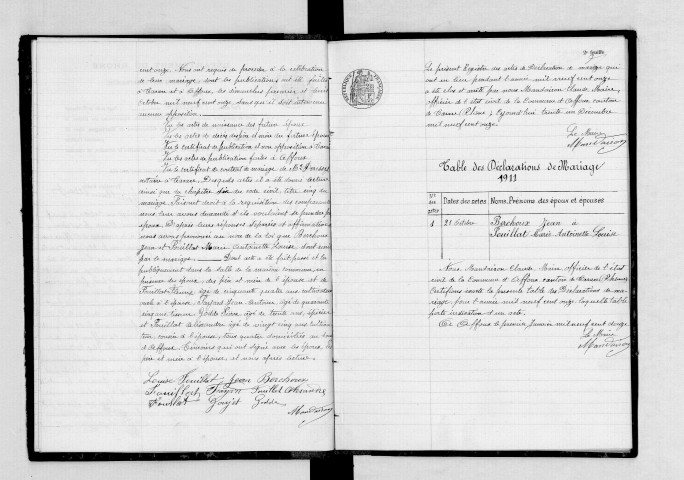 cent onze. Nous ont requis de procéder à la célébration
de leur mariage, dont les publications ont été faites
à et à Affoux, les dimanches premier et
octobre mil neuf cent onze sans que il soit intervenu
aucune opposition.
Vu les actes de naissance des futurs époux
Vu les actes de décès des père et mère du futur époux
Vu le certificat de publication et non opposition à
Vu les actes de publication faites à Affoux
Vu le certificat de contrat de mariage de Me
notaire à Desquels actes il a été donné lecture
ainsi que du chapitre six du code civil, titre cinq du
mariage. Faisant droit à la requisition des comparants
nous leur avons demandé s'ils voulaient se prendre pour
époux. D'après leurs réponses séparées et affirmatives
nous avons prononcé au nom de la loi que Berchoux
Jean et Pouillat Marie Antoinette Louise sont unis
par le mariage. Dont acte a été fait, passé et lu
publiquement dans la salle de la maison commune, en
présence du époux, des père et mère de l'épouse et de
âgé de cinquante quatre ans cultivateur
oncle à l'épouse, Jean Antoine, âgé de quarante
cinq ans, Pierre âgé de trente ans,
et Pouillat Alexandre âgé de vingt cinq ans cultiva
teur, cousin à l'épouse, tous quatre domiciliés au bourg
d'Affoux. Témoins qui ont signé avec les époux, les
père et mère à l'épouse, et nous après lecture.
Louise Pouillat Jean Berchoux
Pouillat Alexandre
Pouillat
Le présent Registre des actes de Déclaration de mariage qui
ont eu lieu pendant l'année mil neuf cent onze
a été clos et arrêté par nous Claude Marie,
officier de l'état civil de la Commune d'Affoux canton
de Tarare (Rhône) ce trente un Décembre
mil neuf cent onze.
Le Maire
Table des Déclarations de Mariage
1911
Nos des actes Dates des actes Noms, Prénoms des époux et épouses
1 21 Octobre Berchoux Jean à
Pouillat Marie Antoinette Louise
Nous, Claude Marie officier de l'état
civil de la Commune d'Affoux, canton de Tarare (Rhône)
Certifions exacte la présente table des Déclarations de ma-
riage pour l'année mil neuf cent onze laquelle table
porte inscription d'un acte.
Affoux le premier Janvier mil neuf cent douze
Le Maire